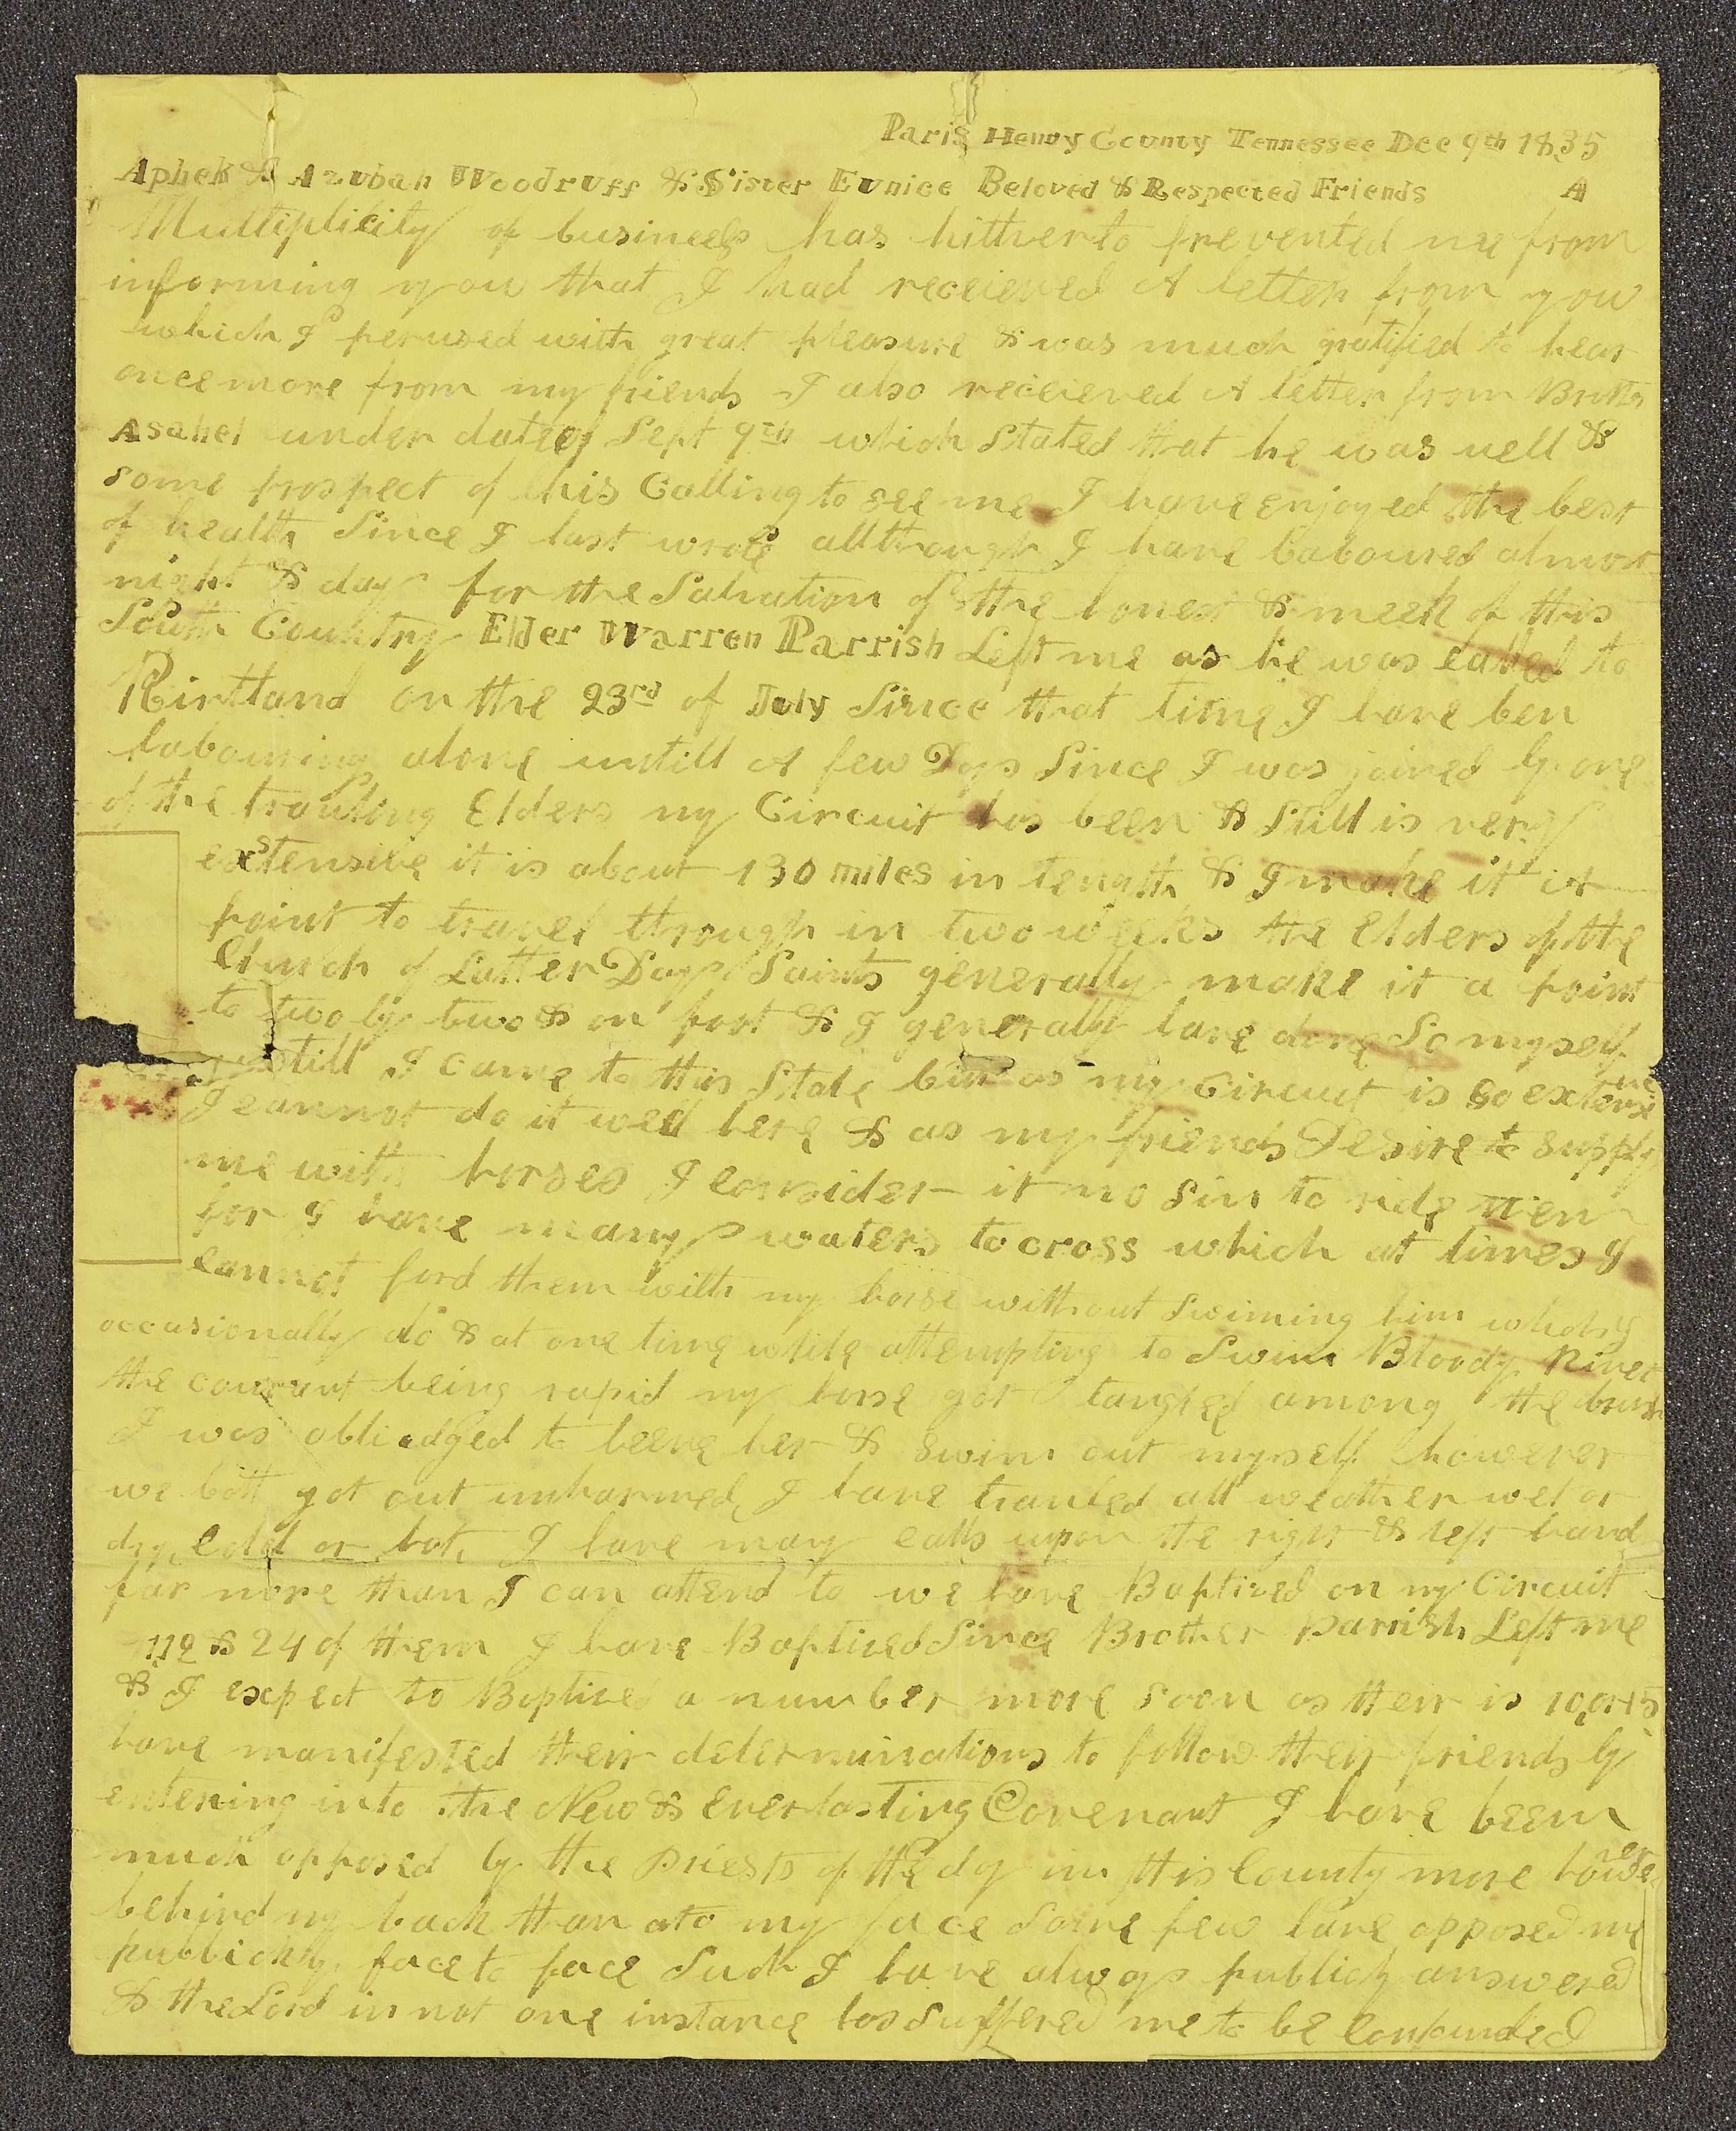 Paris Henry County Tennessee Dec 9th 1835
Aphek & Azubah Woodruff & Sister Eunice Beloved & Respected Friends A
Multiplicity of business has hitherto prevented me from
informing you that I had receieved A letter from you
which I perused with great pleasure & was much gratified to hear
once more from my friends I also receieved A letter from Brother
Asahel under date of Sept 9th which Stated that he was well &
some prospect of his Calling to see me I have enjoyed the best
of health Since I last wrote allthough I have laboured almost
night & day for the Salvation of the honest & meek of this
South Country Elder Warren Parrish Left me as he was called to
Kirtland on the 23rd of July Since that time I have ben
labouring alone untill A few Days Since I was joined by one
of the traviling Elders my Circuit has been & Still is very
extensive it is about 130 miles in length & I make it A
point to travel through in two weeks the Elders of the
Church of Latter Day Saints generally make it a point
to two by two & on foot & I generally have done So myself
untill I came to this State but as my Circuit is so extensive
I cannot do it well here & as my friends Desire to supply
me with horses I consider it no Sin to ride them
for I have many waters to cross which at times I
cannot ford them with my horse without Swiming him which I
occasionally do & at one time while attempting to Swim Bloody River
the courant being rapid my horse got tangled among the brush
I was obliedged to leeve her & Swim out myself however
we both got out unharmed I have traviled all weather wet or
dry cold or hot I have many calls upon the right & left hand
far more than I can attend to we have Baptized on my Circuit
& 24 of them I have Baptized Since Brother Parrish Left me
& I expect to Baptize a number more soon as their is 10 or 15
have manifested their determinations to follow their friends by
entering into the New & everlasting Covenant I have been
much opposed by the Priests of the day in this County more however
behind my back than to my face Some few have opposed me
publickly face to face Such I have always publickly answered
& the Lord in not one instance has Suffered me to be confounded